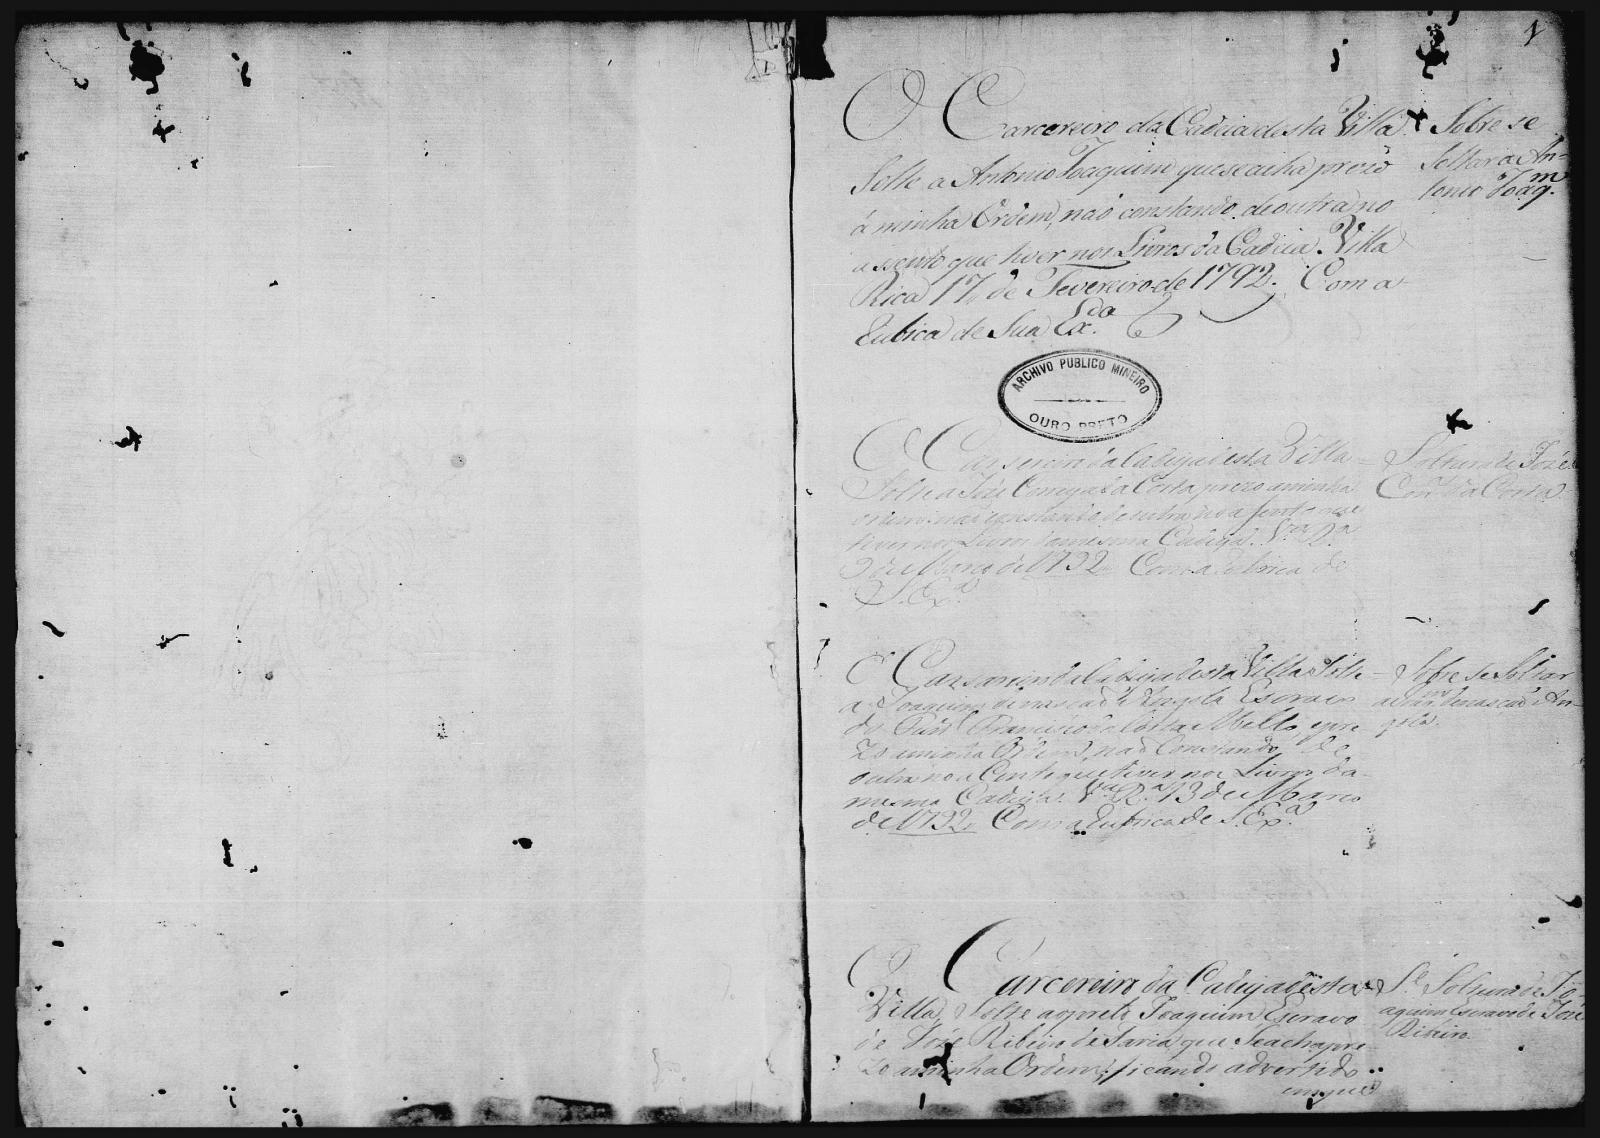 1
O Carcereiro da Cadeia desta Villa
Solte a Antonio Joaquim que se acha prezo
á minha Ordem, não constando de outra no
assento que tiver nos Livros da Cadeia. Villa
Rica 17 de Fevereiro de 1792. Com a
Rubica de Sua Exª.
Sobre se
Soltar a An-
tonio Joaqm.
ARCHIVO PUBLICO MINEIRO
OURO PRETO
O Carsereiro da Cadeya desta Villa
Solte a Jozé Correya da Costa prezo a minha
ordem não constando de outra no asento que
tiver nos Livros da mesma Cadeya. Vª Rª
9 de Março de 1792 Com a Rubrica de
S. Exª.
Soltura de Jozé
Corrª da Costa
O Carsareiro da Cadeya desta Villa Solte
a Joaquim de nascaõ Angola Escravo
do Francisco da Costa Mello, e pre
zo a minha Ordem, naõ Constando de
outra no a Cento que tiver nos Livros da
mesma Cadeya. Vª Rª 13 de Março
de 1792. Com a Rubrica de S. Exª.
Sobre se Soltar
de nascaõ An-
gola.
O Carcereiro da Cadeya desta
Villa, Solte ao preto Joaquim Escravo
de Jozé Ribeiro de Faria que Se acha pre
zo a minha Ordem, ficando advertido
em que
Se. Soltura de Jo-
aquim Escravo de Jozé
Ribeiro